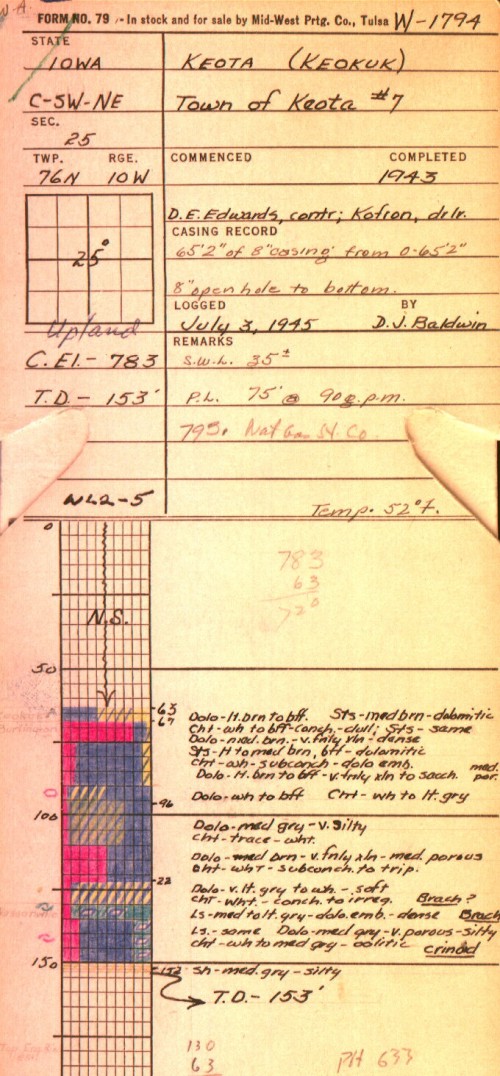 W.A.
FORM NO. 79 - In stock and for sale by Mid-West Prtg. Co., Tulsa W-1794
STATE
IOWA KEOTA (KEOKUK)
C-SW-NE Town of Keota #7
SEC.
25
TWP. RGE. COMMENCED COMPLETED
76N 10W 1943
D.E. Edwards, contr; Kofron, drlr.
CASING RECORD
25° 65'2" of 8" casing from 0-65'2"
8" open hole to bottom.
LOGGED BY
Upland July 3, 1945 D.J. Baldwin
REMARKS
C.El.- 783 S.W.L. 35±
T.D.- 153' P.L. 75' @ 90g.p.m.
795. Nat Gas St. Co.
NL2-5
Temp. 52°F.
0
783
63
720
N.S.
50
63 Dolo-lt.brn to bff. Sts-med brn-dolomitic
67 Cht-wh to bff-conch.-dull; Sts-same
Dolo-med. brn.-v.fnly xln-dense
Sts-lt to med brn, bff-dolomitic
Cht-wh-subconch-dolo emb. med.
Dolo-lt.brn to bff-v.fnly xln to sacch. por.
96 Dolo-wh to bff Cht-wh to lt.gry
100
Dolo-med gry-v.silty
Cht-trace-wht.
Dolo-med brn-v.fnly xln-med. porous
Cht-wht-subconch.to trip.
22
Dolo-v.lt.gry to wh.-soft
Cht-wht.-conch.to irreg. Brach?
Ls-med to lt.gry-dolo.emb.-dense Brach
Ls.-same Dolo-med gry-v.porous-silty
Cht-wh to med gry-oolitic crinoid
150
152 Sh-med.gry-silty
T.D.-153'
130
63
PH 633